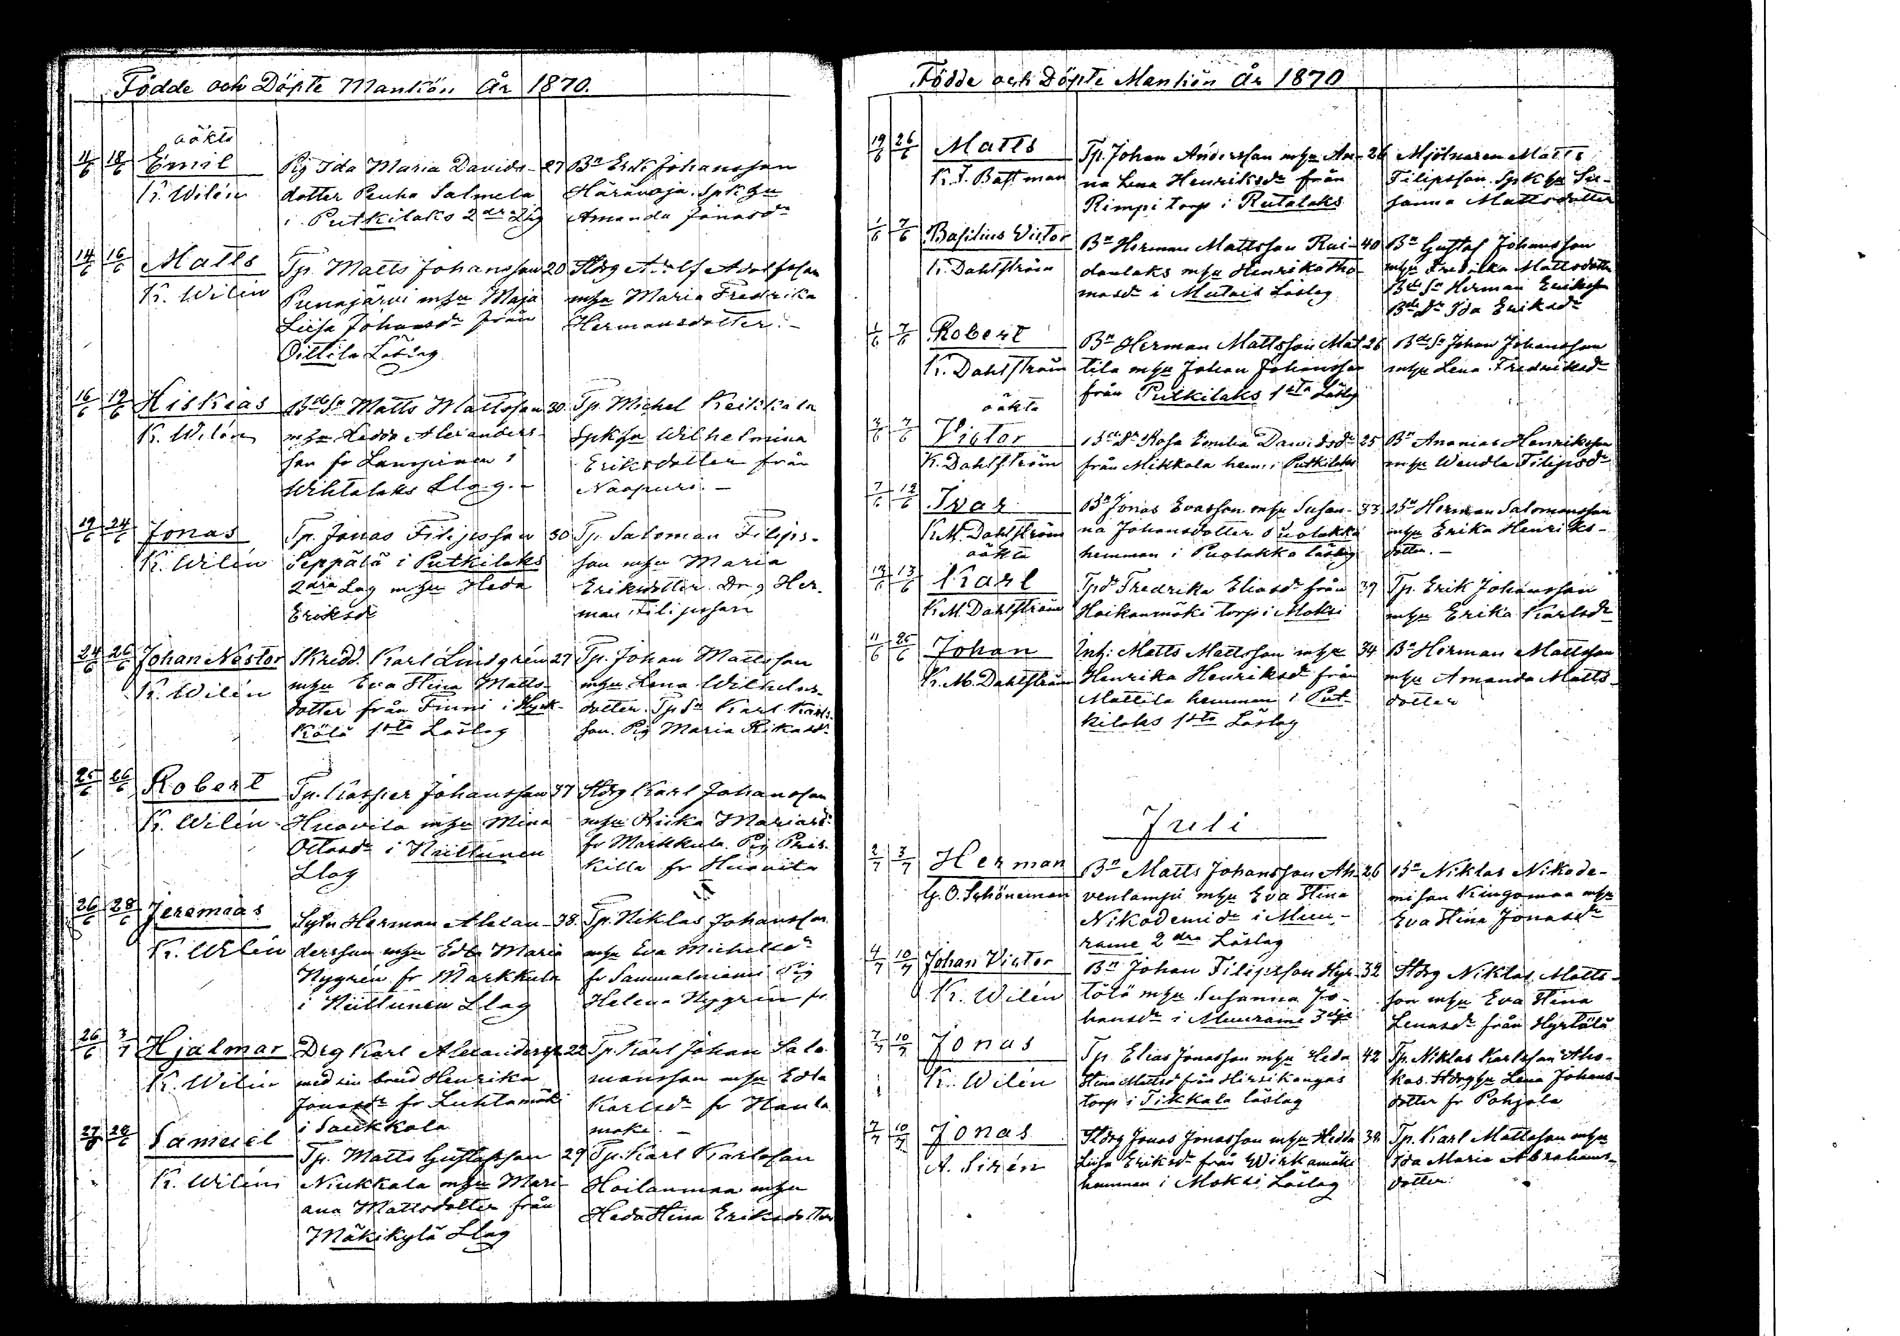 Födde och Döpte Mankön År 1870.
oäkta
11/6 18/6 Emil
K. Wilén
Pig Ida Maria Davids- 27
dotter Penha Salmela
i Putkilaks 2dra Llg
Bn Erik Johansson
Häränoja. Spk hu
Amanda Jonasdr
14/6 16/6 Matts
K. Wilén
Tp. Matts Johansson 20
Punajärvi mhu Maja
Liisa Johansdr från
Oittila Läslag
Hdrg Adolf Adolfsson
mhu Maria Fredrika
Hermansdotter. -
16/6 19/6 Hiskias
K. Wilén
BdeSn Matts Mattsson 30
mhu Hedda Alexanders-
son fr Lampinen i
Wihtalaks Llag. -
Tp. Michel Keikkala
Spkhu Wilhelmina
Eriksdotter från
Naapuri. -
19/6 24/6 Jonas
K. Wilén
Tp. Jonas Filipsson 30
Seppälä i Putkilaks
2dra Lag mhu Heda
Eriksdr
Tp. Salomon Filips-
son mhu Maria
Eriksdotter. Drg Her-
man Filipsson
24/6 26/6 Johan Nestor
K. Wilén
Skredd. Karl Lindgrén 27
mhu Eva Stina Matts-
dotter från Finni i Hyrk-
kölä 1sta Läslag
Tp. Johan Mattsson
mhu Lena Wilhelms-
dotter. TpSn Karl Karls-
son. Pig Maria Rikasdr
25/6 26/6 Robert
K. Wilén
Tp. Kasper Johansson 37
Huovila mhu Mina
Ottosdr i Niittunen
Llag
Hdrg Karl Johansson
mhu Riika Mariasdr
fr Markkula. Pig Pris-
killa fr Huovila
26/6 28/6 Jeremias
K. Wilén
Sytn Herman Alexan- 38.
dersson mhu Edla Maria
Nygrén fr Markkula
i Niittunen Llag
Tp. Niklas Johansson
mhu Eva Michelsdr
fr Sammalniemi Pig
Helena Nygrén fr
26/6 3/7 Hjalmar
K. Wilén
Drg Karl Alexandersson 22
med sin brud Henrika
Jonasdr fr Luhtamäki
i Saukkola
Tp. Karl Johan Salo-
monsson mhu Edla
Karlsdr fr Hauta
mäke. -
27/6 28/6 Samuel
K. Wilén
Tp. Matts Gustafsson 29
Niukkala mhu Mari-
ana Mattsdotter från
Mäkikylä Llag
Tp. Karl Karlsson
Hoilanmaa mhu
Heda Stina Eriksdotter
Födde och Döpte Mankön År 1870
19/6 26/6 Matts
K. F. Bastman
Tp. Johan Andersson mhu An- 26
na Lena Henriksdr från
Rimpi torp i Rutalaks
Mjölnaren Matts
Filipsson. Spk hu Su-
sanna Mattsdotter
1/6 7/6 Basilius Victor
K. Dahlström
Bn Herman Mattsson Rui- 40
danlaks mhu Henrika Tho-
masdr i Mutais Läslag
Bn Gustaf Johansson
mhu Fredrika Mattsdotter
BdeSn Herman Eriksson
Bdedr Ida Eriksdr
1/6 7/6 Robert
K. Dahlström
Bn Herman Mattsson Mat 26
tila mhu Johan Johansson
från Putkilaks 1sta Läslg
BdeSn Johan Johansson
mhu Lena Fredriksdr
oäkta
2/6 7/6 Victor
K. Dahlström
Bdedr Rosa Emilia Davidsdr 25
från Mikkola hem. i Putkilaks
Bn Ananias Henriksson
mhu Wendla Filipsdr
7/6 12/6 Ivar
K. M. Dahlström
Bn Jonas Evasson mhu Susan- 33
na Johansdotter Puolakka
hemman i Puolakka läslag
Bn Herman Salomonsson
mhu Erika Henriks-
dotter. -
oäkta
12/6 13/6 Karl
K. M. Dahlström
Tpdr Fredrika Eliasdr från 39
Haikanmäki torp i Moksi
Tp. Erik Johansson
mhu Erika Karlsdr
11/6 25/6 Johan
K. M. Dahlström
Inh: Matts Mattsson mhu 34
Henrika Henriksdr från
Mattila hemman i Put-
kilaks 1sta Läslag
Bn Herman Mattsson
mhu Amanda Matts-
dotter
Juli
2/7 3/7 Herman
G. O. Schöneman
Bn Matts Johansson Ah- 26
venlampi mhu Eva Stina
Nikodemidr i Muu-
rame 2dra Läslag
Bn Niklas Nikode-
misson Kingomaa mhu
Eva Stina Jonasdr
4/7 10/7 Johan Victor
K. Wilén
Bn Johan Filipsson Hyr- 32
tölä mhu Susanna Jo-
hansdr i Muurame 3dje
Hdrg Niklas Matts-
son mhu Eva Stina
Lenasdr från Hyrtölä
7/7 10/7 Jonas
K. Wilén
Tp. Elias Jonasson mhu Heda 42
Stina Mattsdr från Hirsikangas
torp i Tikkala läslag
Tp. Niklas Karlsson Aho-
kas. Hdrghu Lena Johans-
dotter fr Pohjola
7/7 10/7 Jonas
A. Sirén
Hdrg Jonas Jonasson mhu Hedda 38
Liisa Eriksdr från Wirkamäki
hemman i Moksi Läslag
Tp. Karl Mattsson mhu
Ida Maria Abrahams-
dotter.